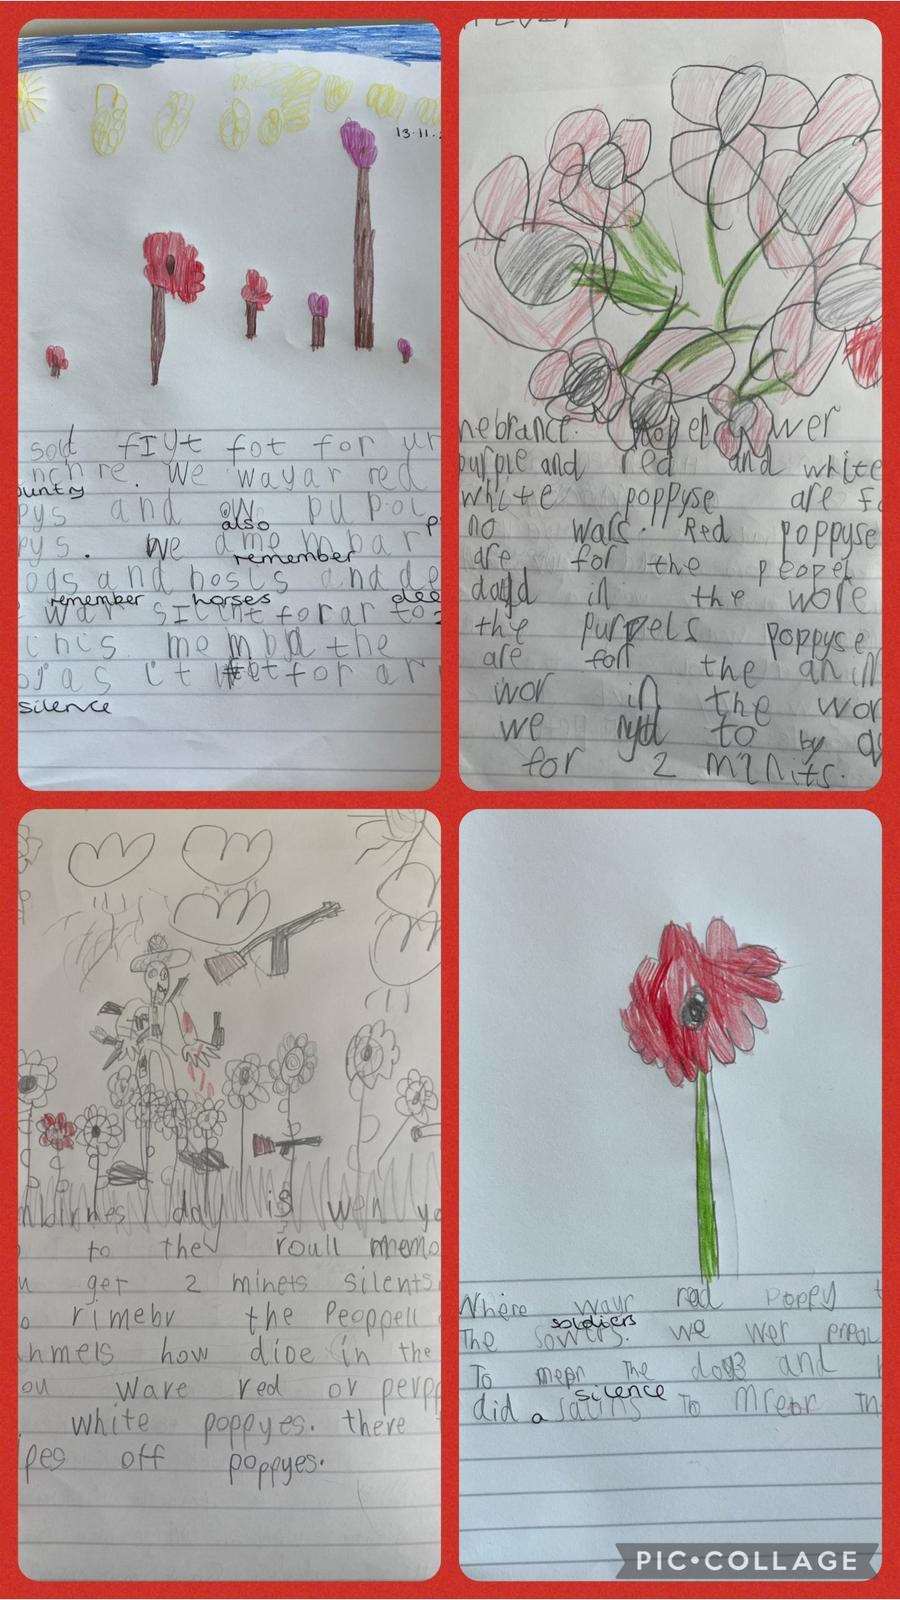 13.11.
sold fIyt fot for ur
nch re. We wayar red
ountry
pys and ow pupol
also
pys. We a me mbar
remember
ogs and hosis and de
remember horses
e war silent for ar to
this me mbd the
as it for ar
silence
nebrance. flower
purple and red and white
white poppyse are fo
no wars. Red poppyse
are for the peopel
dayd in the wore
the purpels poppyse
are for the anim
wor in the wor
we hyd to by
for 2 minits.
nbirnes day is wen yo
to the roull memo
u get 2 minets silents
o rimebr the Peoppell
nmels how dioe in the
ou ware red or perpp
white poppyes. there
pes off poppyes.
Where wayr red Poppy t
soldiers
The sowers. we wer
To mepr the dogs and
silence
did a To Mrepr Th
PIC•COLLAGE